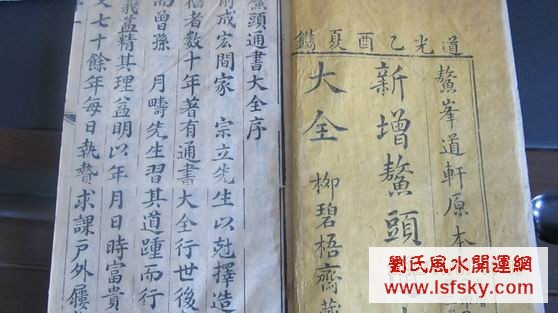 道光乙酉夏鐫
鰲峯道軒原本
新增鰲頭
大全 柳碧梧齋藏
鰲頭通書大全序
成宏間家 宗立先生以尅擇造
信者數十年著有通書大全行世後
而曾孫 月疇先生習其道踵而行
義益精其理益明以年月日時富貴
七十餘年每日執贄求課戶外屨
劉氏風水開運網
www.lsfsky.com